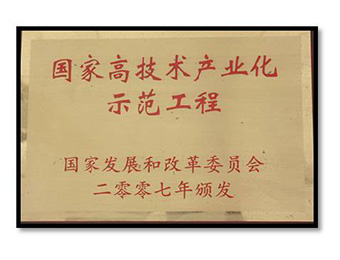 国家高技术产业化
示范工程
国家发展和改革委员会
二零零七年颁发